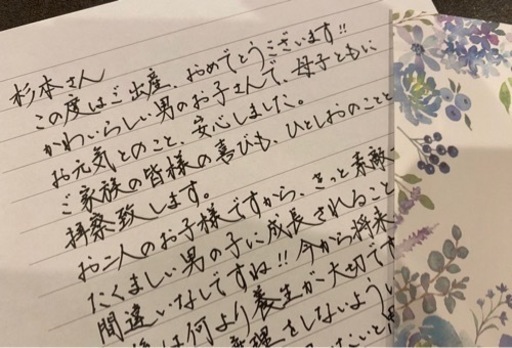 杉本さん
この度はご出産、おめでとうございます!!
かわいらしい男のお子さんで、母子ともに
お元気とのこと、安心しました。
ご家族の皆様の喜びも、ひとしおのことと
拝察致します。
お二人のお子様ですから、きっと素敵
たくましい男の子に成長されること
間違いなしですね!!今から将来
は何より養生が大切です
理をしないように